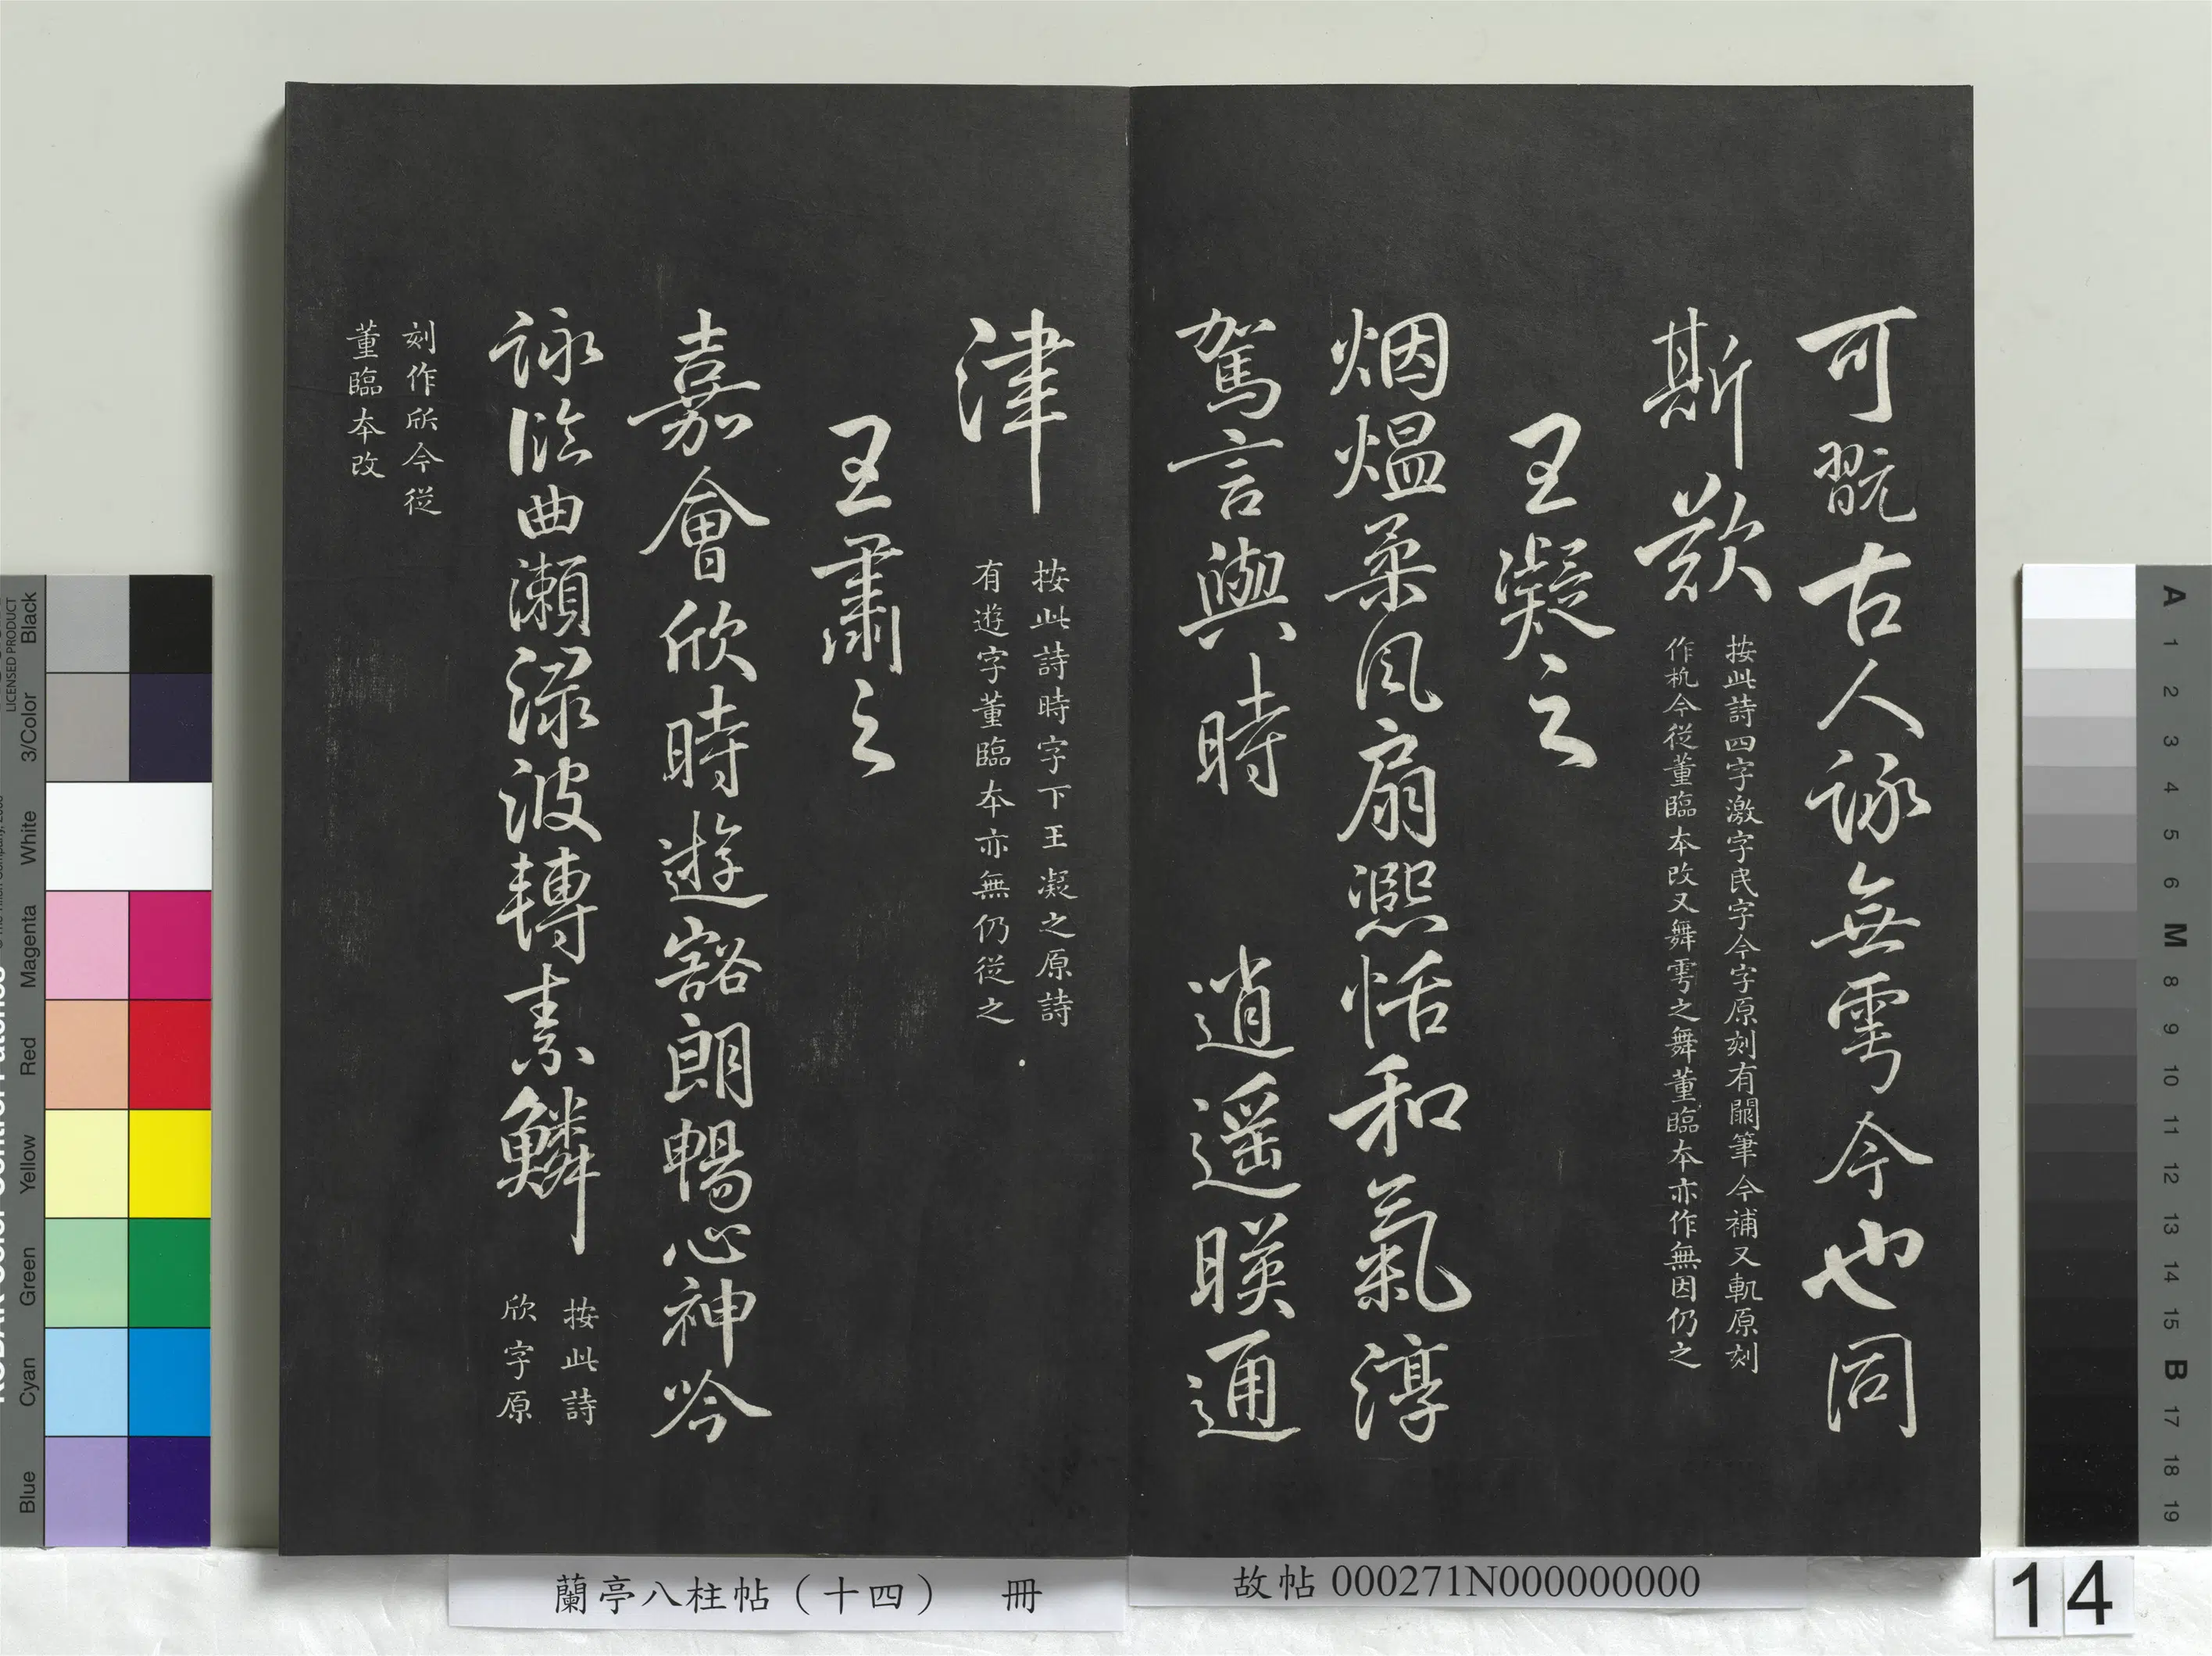 可翫古人詠無雩今也同
斯歎
按此詩四字激字民字今字原刻有闕筆今補又軏原刻
作杋今從董臨本改又舞雩之舞董臨本亦作無因仍之
王凝之
烟熅柔風扇熙恬和氣淳
駕言興時 逍遥暎通
津
按此詩時字下王凝之原詩
有遊字董臨本亦無仍從之
王肅之
嘉會欣時遊豁朗暢心神吟
詠臨曲瀨淥波轉素鱗
按此詩
欣字原
刻作㕁今從
董臨本改
蘭亭八柱帖（十四） 冊
故帖 000271N000000000
14
LICENSED PRODUCT
Black
3/Color
White
Magenta
Red
Yellow
Green
Cyan
Blue
A
1
2
3
4
5
6
M
8
9
10
11
12
13
14
15
B
17
18
19